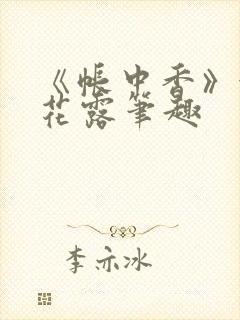 《帐中香》
花露笔趣
李亦冰